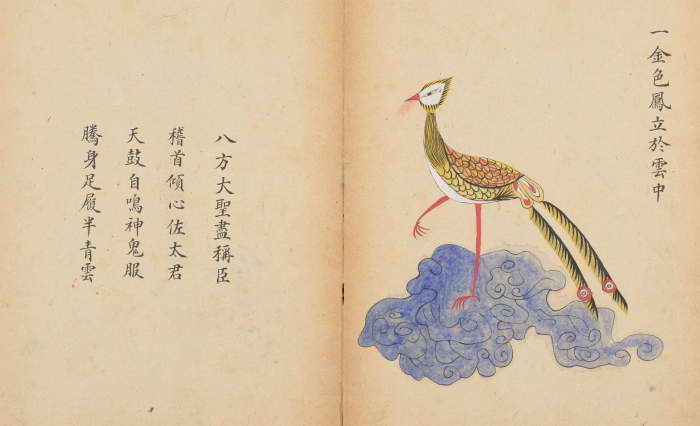 一金色鳳立於雲中
八方大聖盡稱臣
稽首傾心佐太君
天鼓自鳴神鬼服
騰身足履半青雲